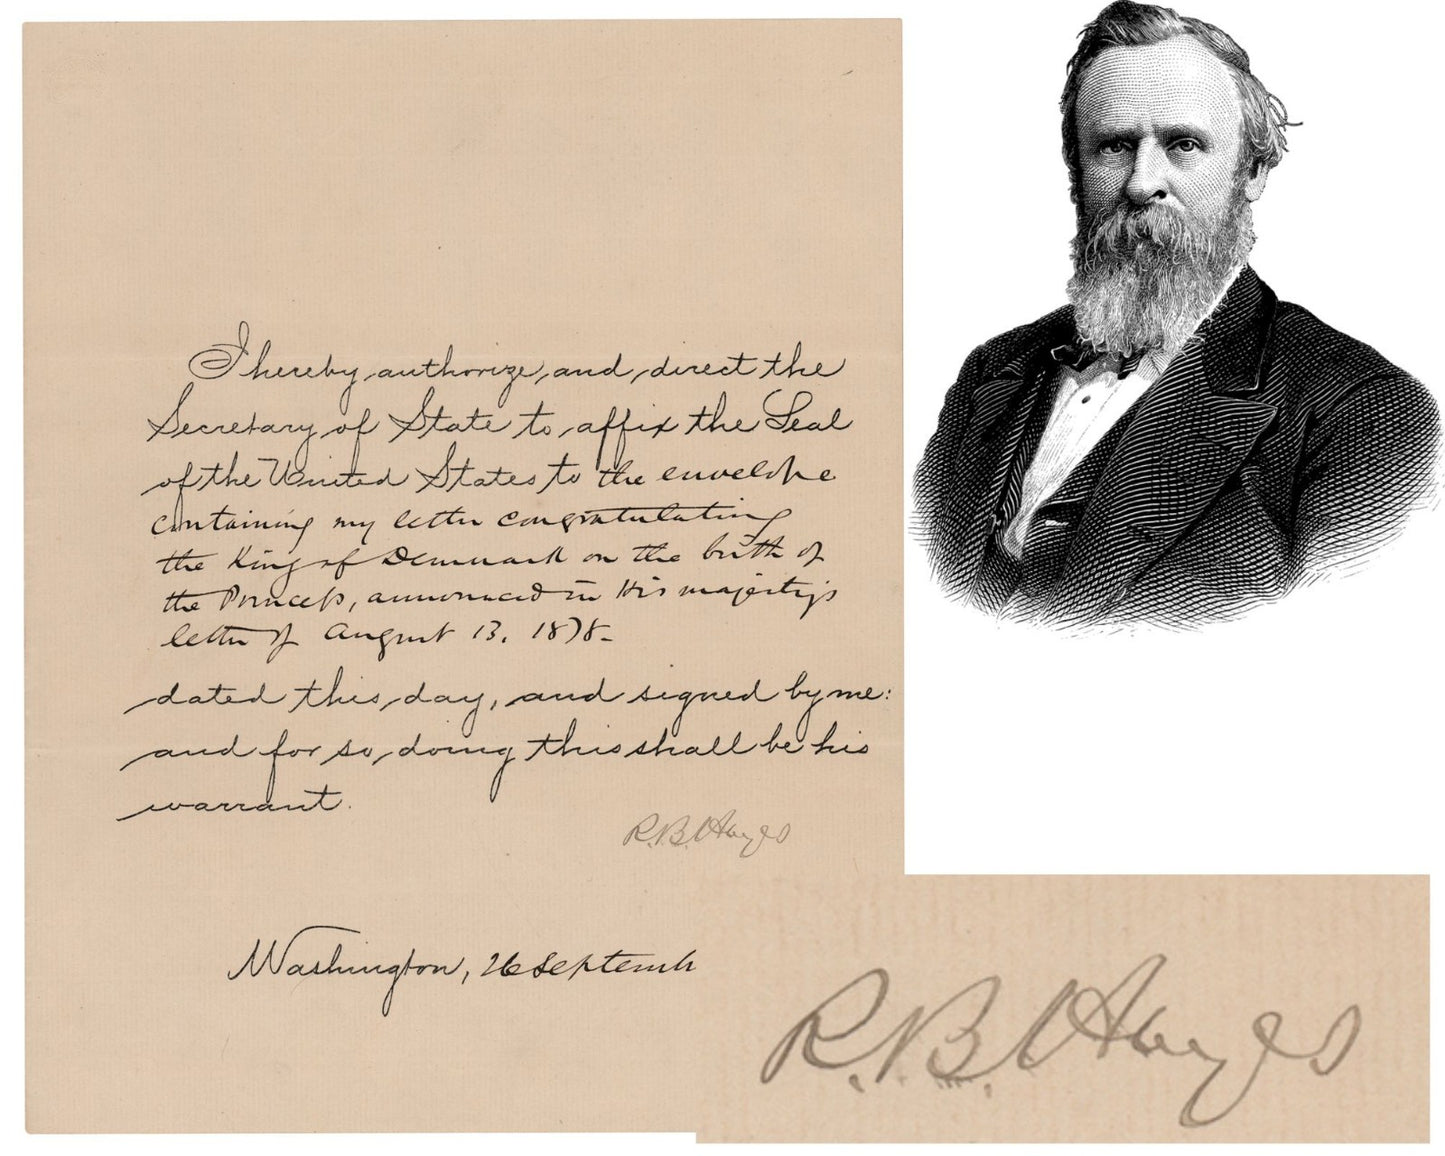 I hereby authorize and direct the
Secretary of State to affix the Seal
of the United States to the envelope
containing my letter congratulating
the King of Denmark on the birth of
the Princess, announced in His majesty's
letter of August 13. 1878-
dated this day, and signed by me:
and for so doing this shall be his
warrant.
R. B. Hayes
Washington, 26 Septemb
R. B. Hayes